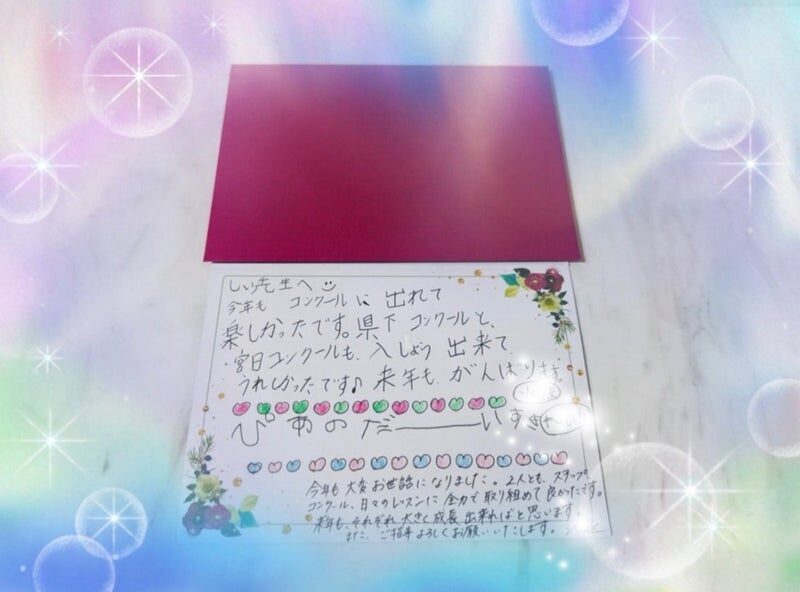 先生へ
今年も コンクールに 出れて
楽しかったです。県下 コンクールと、
宮日コンクールも、入しょう 出来て
うれしかったです♪ 来年も がんばります
ぴあのだーーいすき
今年も 大変お世話になりました。2人とも、ステップ
コンクール、日々のレッスンに 全力で 取り組めて 良かったです。
来年も、それぞれ 大きく 成長 出来ればと思います。
また、ご指導よろしくお願いいたします。